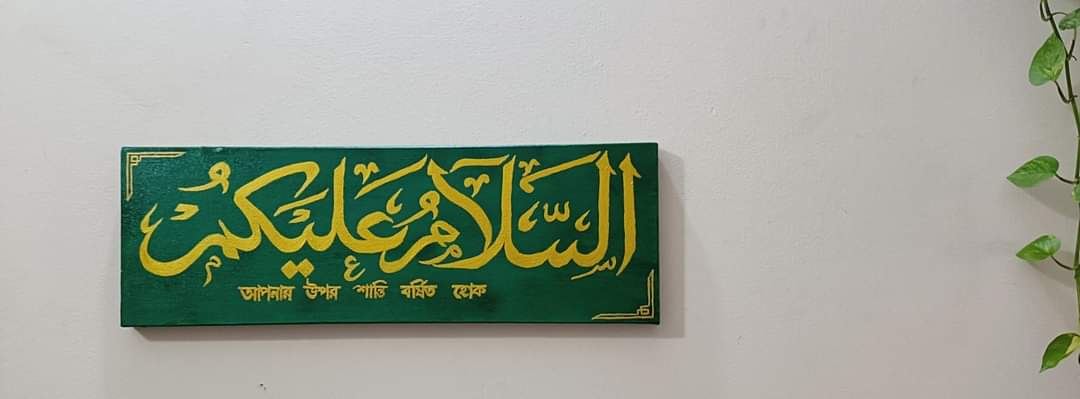 السَّلَامُ عَلَيْكُمْ
আপনার উপর শান্তি বর্ষিত হোক